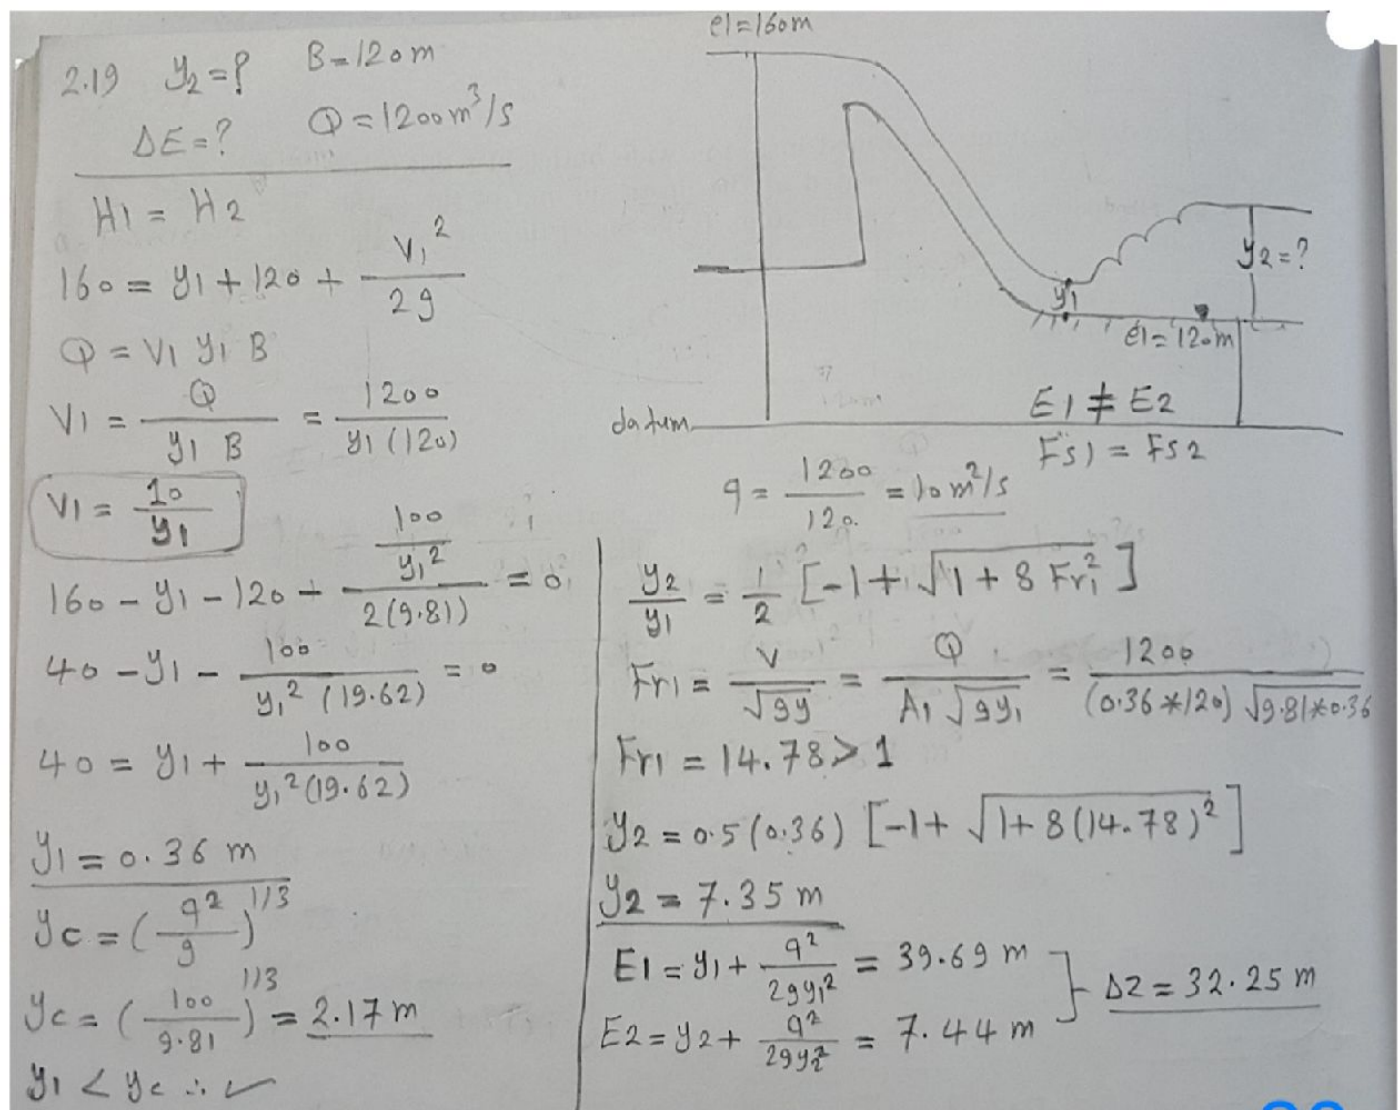 2.19 y₂ = ? B = 120 m
ΔE = ? Q = 1200 m³/s
H1 = H2
160 = y1 + 120 + V₁² / 2g
Q = V1 y1 B
V1 = Q / (y1 B) = 1200 / (y1 (120))
V1 = 10 / y1
160 - y1 - 120 + (100 / y₁²) / 2(9.81) = 0
40 - y1 - 100 / (y₁² (19.62)) = 0
40 = y1 + 100 / (y₁² (19.62))
y1 = 0.36 m
yc = (q² / g)^1/3
yc = (100 / 9.81)^1/3 = 2.17 m
y1 < yc ∴ ✓
el = 160m
y1
y2 = ?
el = 120m
datum
E1 ≠ E2
Fs1 = Fs2
q = 1200 / 120 = 10 m²/s
y2 / y1 = 1/2 [-1 + √(1 + 8 Fr₁²)]
Fr1 = V / √(gy) = Q / (A1 √(gy₁)) = 1200 / ((0.36*120) √(9.81*0.36))
Fr1 = 14.78 > 1
y2 = 0.5 (0.36) [-1 + √(1 + 8 (14.78)²)]
y2 = 7.35 m
E1 = y1 + q² / 2gy₁² = 39.69 m
E2 = y2 + q² / 2gy₂² = 7.44 m
Δ2 = 32.25 m